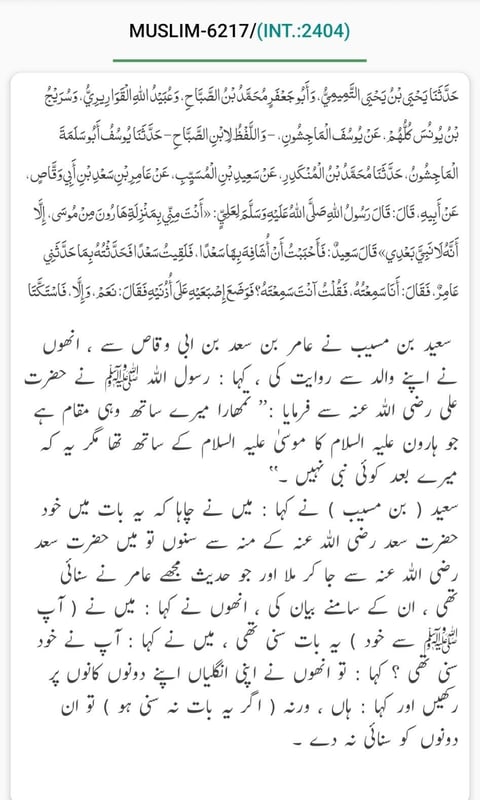 MUSLIM-6217/(INT.:2404)
حَدَّثَنَا يَحْيَى بْنُ يَحْيَى التَّمِيمِيُّ، وَأَبُو جَعْفَرٍ مُحَمَّدُ بْنُ الصَّبَّاحِ، وَعُبَيْدُ اللهِ الْقَوَارِيرِيُّ، وَسُرَيْجُ
بْنُ يُونُسَ كُلُّهُمْ، عَنْ يُوسُفَ الْمَاجِشُونِ، - وَاللَّفْظُ لِابْنِ الصَّبَّاحِ - حَدَّثَنَا يُوسُفُ أَبُو سَلَمَةَ
الْمَاجِشُونُ، حَدَّثَنَا مُحَمَّدُ بْنُ الْمُنْكَدِرِ، عَنْ سَعِيدِ بْنِ الْمُسَيِّبِ، عَنْ عَامِرِ بْنِ سَعْدِ بْنِ أَبِي وَقَّاصٍ،
عَنْ أَبِيهِ، قَالَ: قَالَ رَسُولُ اللهِ صَلَّى اللهُ عَلَيْهِ وَسَلَّمَ لِعَلِيٍّ: «أَنْتَ مِنِّي بِمَنْزِلَةِ هَارُونَ مِنْ مُوسَى، إِلَّا
أَنَّهُ لَا نَبِيَّ بَعْدِي» قَالَ سَعِيدٌ: فَأَحْبَبْتُ أَنْ أُشَافِهَ بِهَا سَعْدًا، فَلَقِيتُ سَعْدًا فَحَدَّثْتُهُ بِمَا حَدَّثَنِي
عَامِرٌ، فَقَالَ: أَنَا سَمِعْتُهُ، فَقُلْتُ آنْتَ سَمِعْتَهُ؟ فَوَضَعَ إِصْبَعَيْهِ عَلَى أُذُنَيْهِ فَقَالَ: نَعَمْ، وَإِلَّا، فَاسْتَكَّتَا
سعید بن مسیب نے عامر بن سعد بن ابی وقاص سے ، انھوں
نے اپنے والد سے روایت کی ، کہا : رسول اللہ ﷺ نے حضرت
علی رضی اللہ عنہ سے فرمایا :’’ تمھارا میرے ساتھ وہی مقام ہے
جو ہارون علیہ السلام کا موسیٰ علیہ السلام کے ساتھ تھا مگر یہ کہ
میرے بعد کوئی نبی نہیں ۔‘‘
سعید ( بن مسیب ) نے کہا : میں نے چاہا کہ یہ بات میں خود
حضرت سعد رضی اللہ عنہ کے منہ سے سنوں تو میں حضرت سعد
رضی اللہ عنہ سے جا کر ملا اور جو حدیث مجھے عامر نے سنائی
تھی ، ان کے سامنے بیان کی ، انھوں نے کہا : میں نے ( آپ
ﷺ سے خود ) یہ بات سنی تھی ، میں نے کہا : آپ نے خود
سنی تھی ؟ کہا : تو انھوں نے اپنی انگلیاں اپنے دونوں کانوں پر
رکھیں اور کہا : ہاں ، ورنہ ( اگر یہ بات نہ سنی ہو ) تو ان
دونوں کو سنائی نہ دے ۔